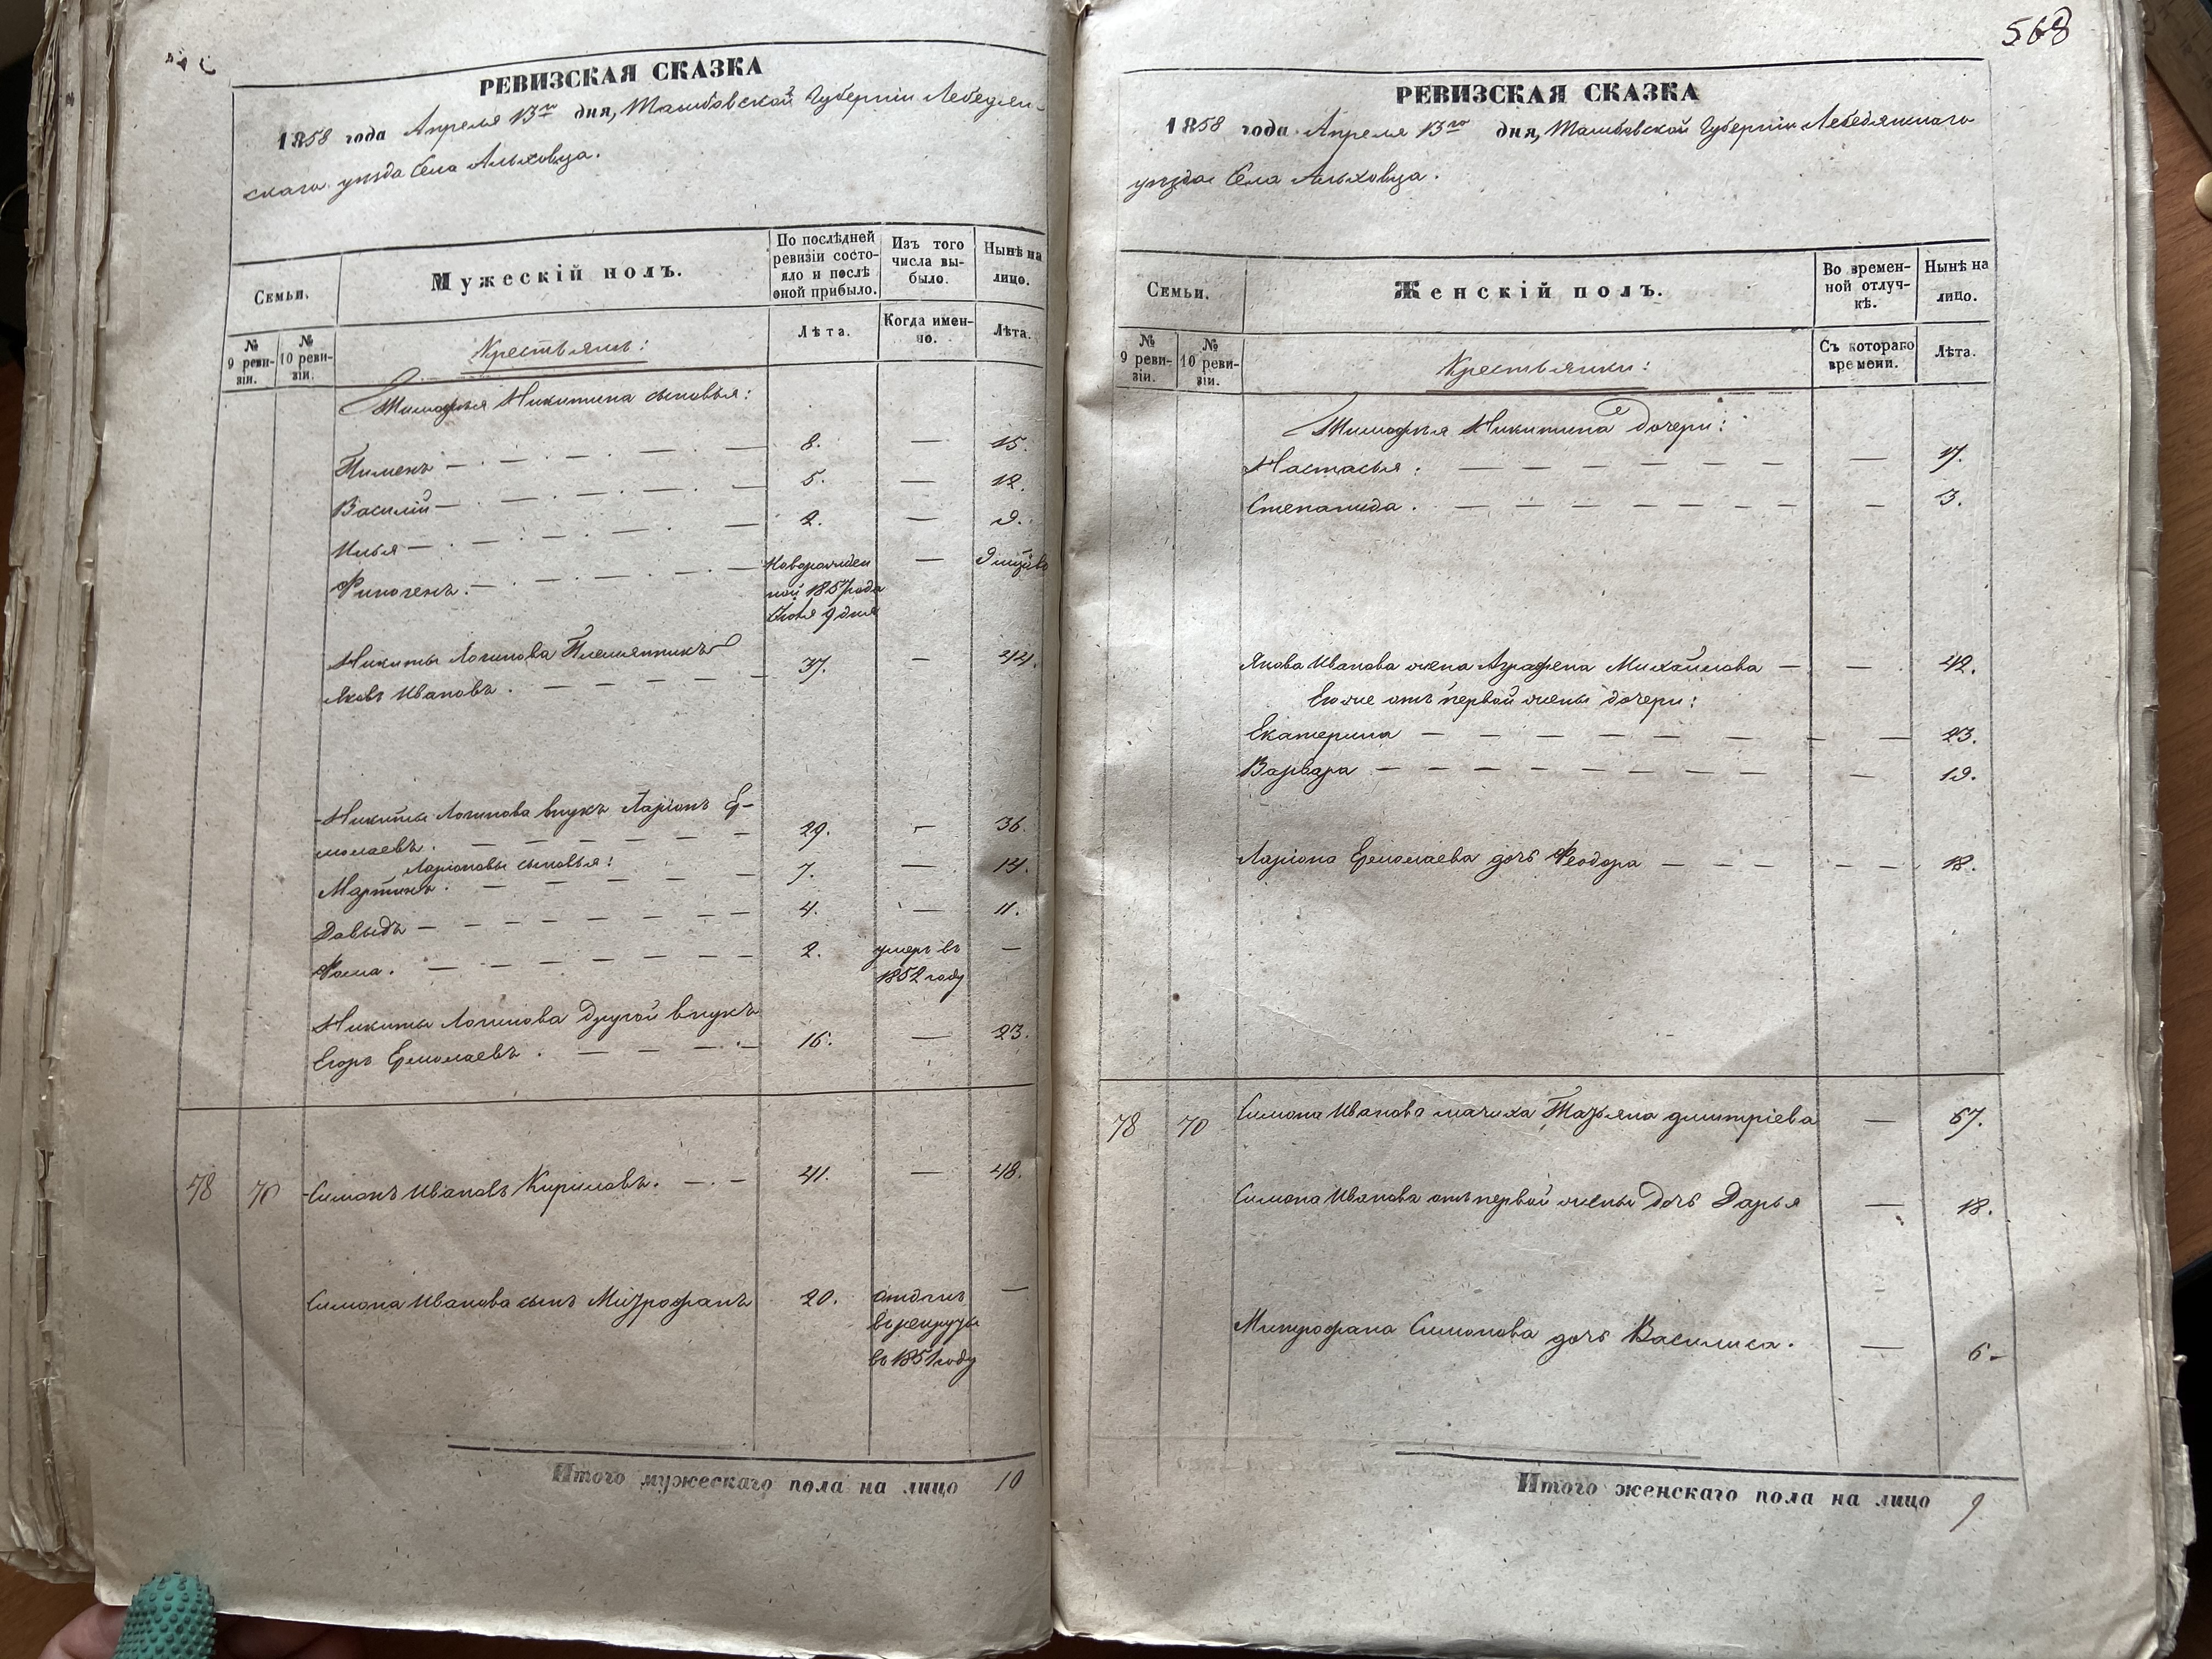 РЕВИЗСКАЯ СКАЗКА
1858 года Апреля 13го дня, Тамбовской Губернiи Лебедян-
скаго уѣзда Села Ольховца.
Семьи.
Мужескiй полъ.
По послѣдней
ревизiи состо-
яло и послѣ
оной прибыло.
Изъ того
числа вы-
было.
Нынѣ на
лицо.
№
9 реви-
зiи.
№
10 реви-
зiи.
Крестьяне:
Лѣта.
Когда имен-
но.
Лѣта.
Тимофѣя Никитина сыновья:
Пименъ — 8. — 15.
Василiй — 5. — 12.
Илья — 2. — 9.
Финогенъ. — Новорожден — 9 мцовъ
ной 1857 года
Iюля 9 дня
Никиты Логинова Племянникъ
Яковъ Ивановъ. — 37. — 44.
Никиты Логинова внукъ Ларiонъ Ер-
молаевъ. — 29. — 36.
Ларiоновы сыновья:
Мартинъ. — 7. — 14.
Давыдъ — 4. — 11.
Фома. — 2. умеръ въ —
1852 году
Никиты Логинова другой внукъ
Егоръ Ермолаевъ. — 16. — 23.
78 70 Симонъ Ивановъ Кириловъ. — 41. — 48.
Симона Иванова сынъ Митрофанъ 20. отданъ —
въ рекруты
въ 1851 году
Итого мужескаго пола на лицо 10
568
РЕВИЗСКАЯ СКАЗКА
1858 года Апреля 13го дня, Тамбовской Губернiи Лебедянскаго
уѣзда Села Ольховца.
Семьи.
Женскiй полъ.
Во времен-
ной отлуч-
кѣ.
Нынѣ на
лицо.
№
9 реви-
зiи.
№
10 реви-
зiи.
Крестьянки:
Съ котораго
времени.
Лѣта.
Тимофѣя Никитина дочери:
Настасья: — — 17.
Степанида. — — 3.
Якова Иванова жена Аграфена Михайлова — — 42.
Егоже отъ первой жены дочери:
Екатерина — — 23.
Варвара — — 19.
Ларiона Ермолаева дочь Феодора — — 12.
78 70 Симона Иванова мачиха Татьяна дмитрiева — 67.
Симона Иванова отъ первой жены дочь Дарья — 18.
Митрофана Симонова дочь Василиса. — 6 -
Итого женскаго пола на лицо 9